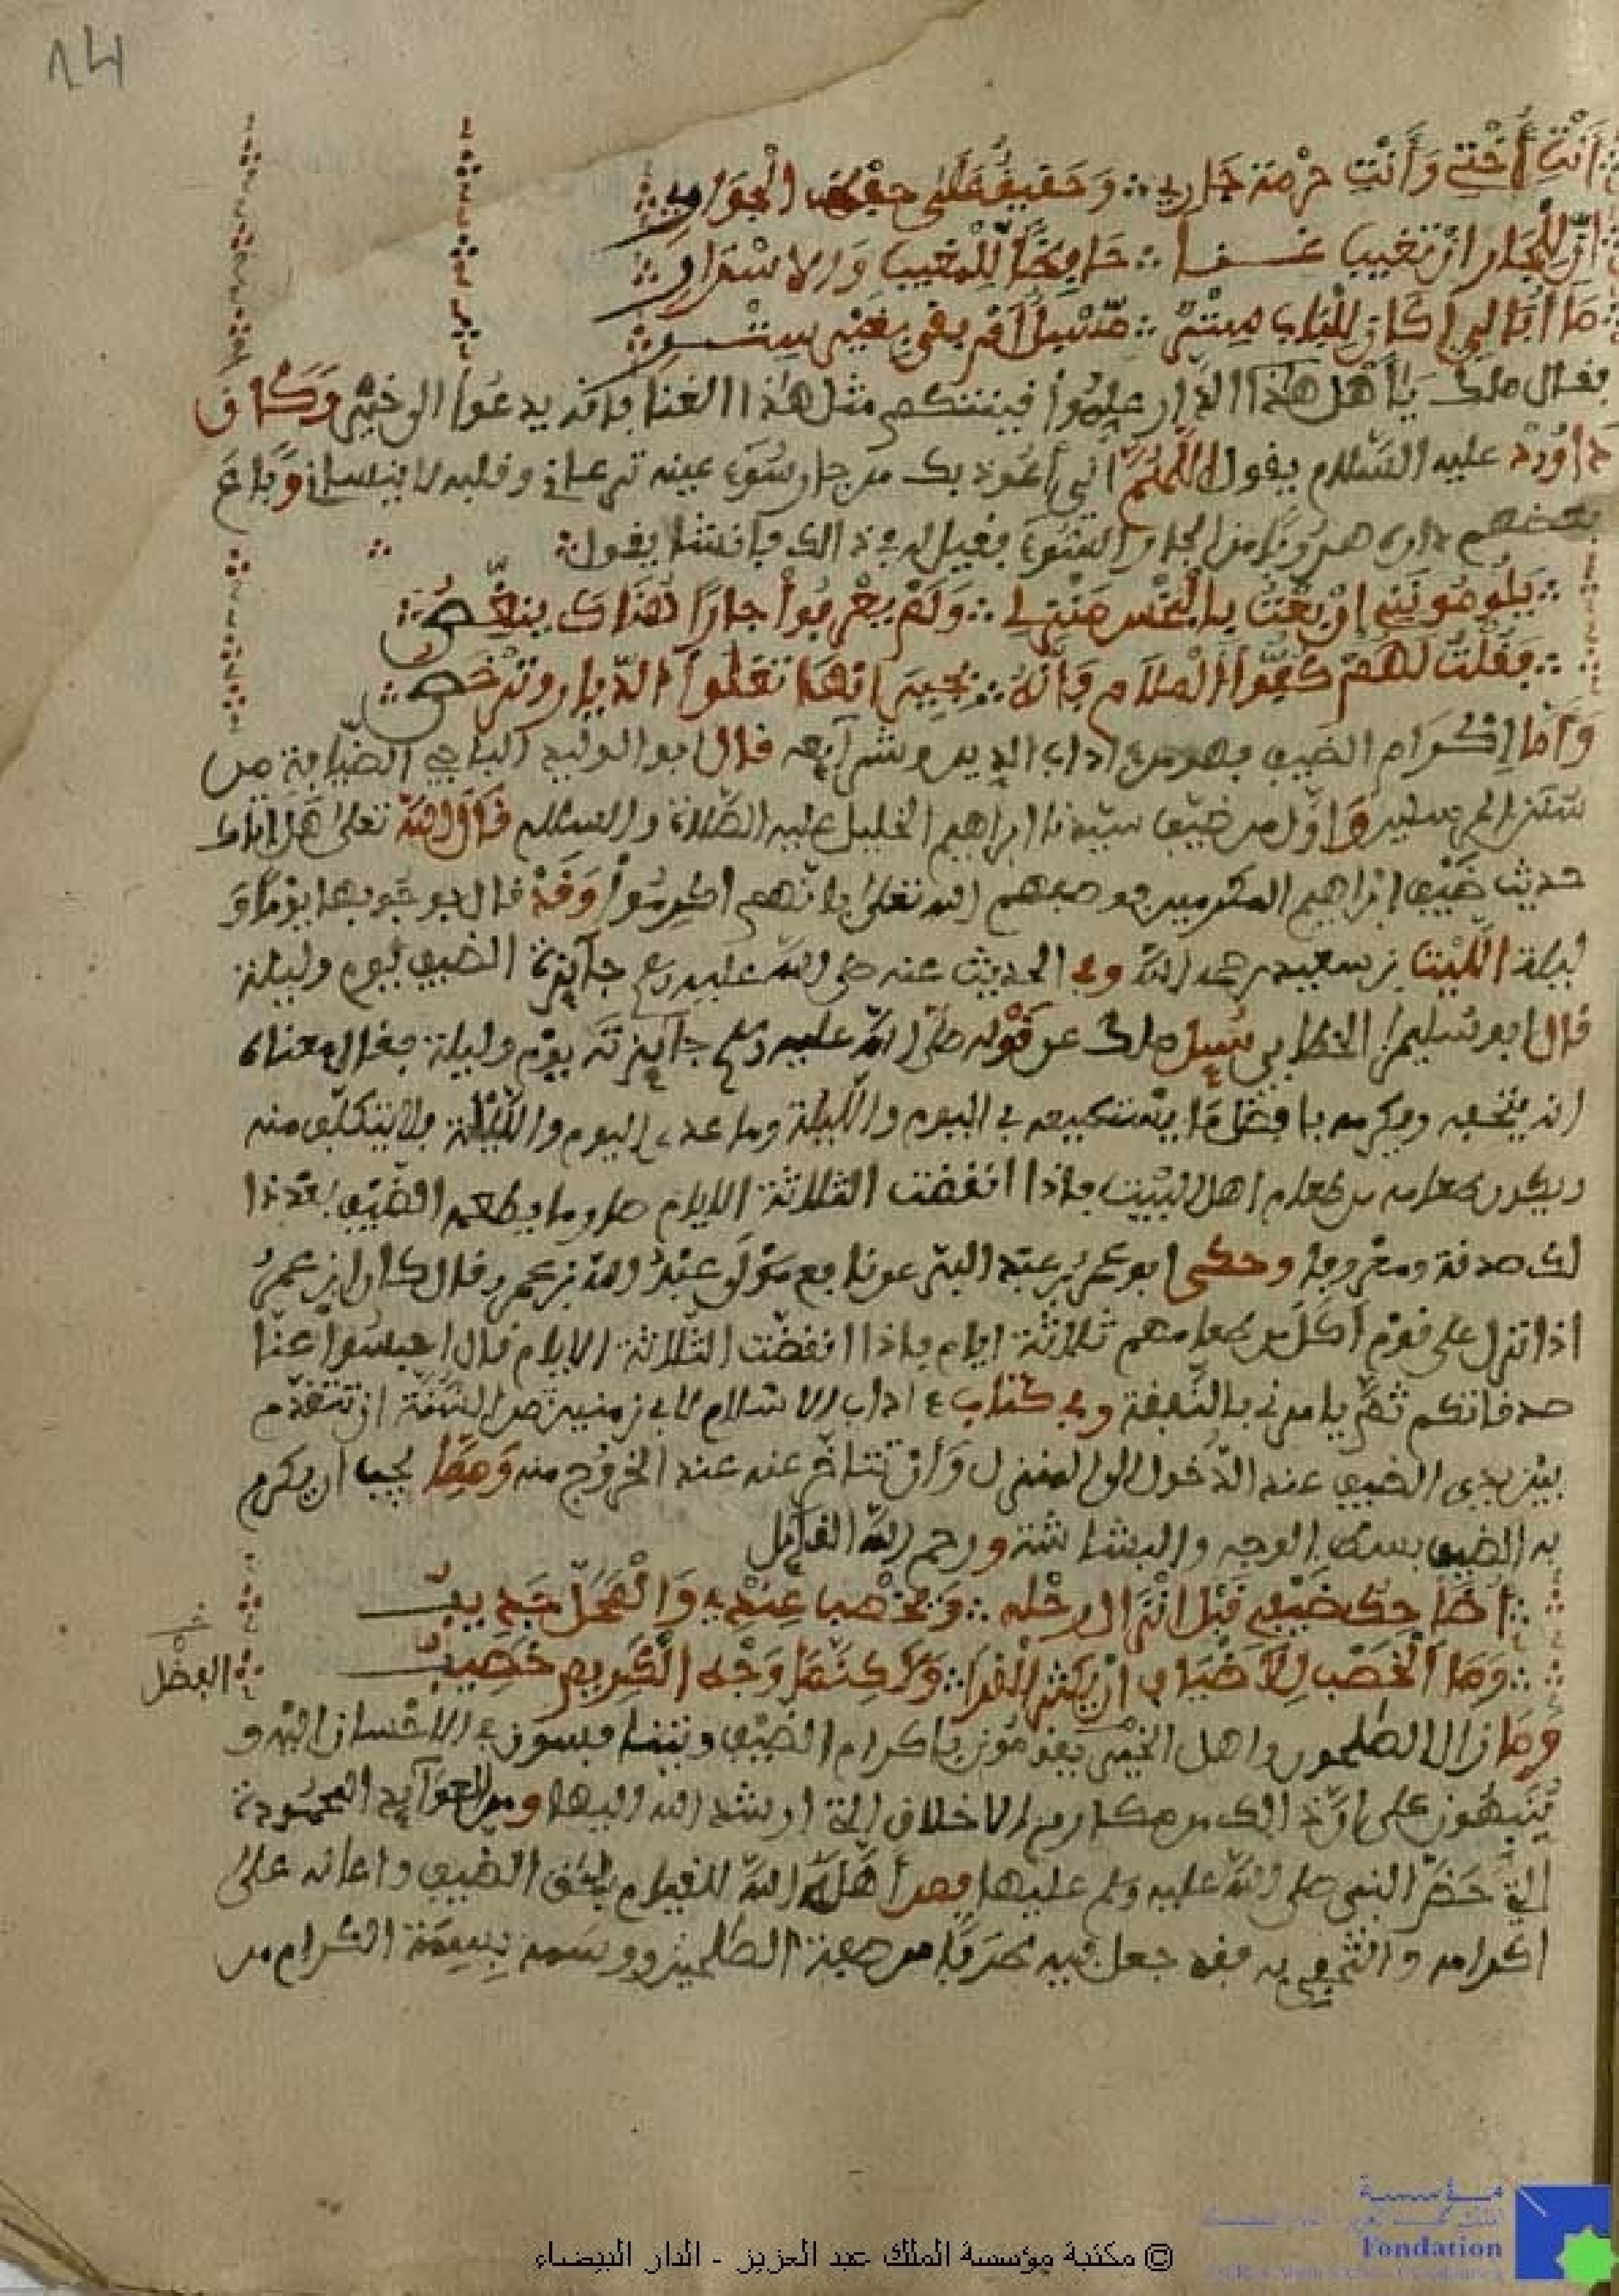 14
أَنْتِ أُخْتِي وَأَنْتِ حُرْمَة جَارِي ∴ وَحَقِيق عَلَى حِفْظ الْجِوَارِ
إنّ لِلْجَارِ إنْ تَغَيب غَـيْبـاً ∴ حَافِظًا لِلْمَغِيبِ وَالاسْرَارِ
مَا أُبَالِي إكَان لِلْبَاب سِتْر ∴ مُسْبَلٌ أمْ بَقِي بِغَيْر سِتْـرِ
فقال ملك يَا أهل هَذا الدّار عَلِّمُوا فينتكم مثل هذا الغنا فانه يدعوا الى خَيْر وَكَان
دَاوُدْ عليه السّلام يقول اللّهُمَّ اني أعوذ بك من جار سُوء عينه ترعاني وقلبه لا ينساني وَبَاعَ
بعضهم داره هروبًا من الجار السّوء فقيل له في ذالك فانشا يقول
يَلُومُونَنِي إنْ بِعْتُ بِالْبَخْس مَنْزِلِي ∴ وَلَمْ يَعْرِفُوا جارًا هُنَاكَ ينَغِّصُ
فَقُلْتُ لَهُمْ كُفُّوا الْمَلاَم فَإنَّهُ ∴ بِجِيرَانِهَا تَغْلُوا الدّيار وتَرْخصُ
وَأمَّا إكْرَام الضيف فهو من اداب الدين وشرآيعه قال ابو الوليد الباجي الضيّافة من
سُنَن المرسلين وَاوّل من ضيّف سيّدنا ابراهيم الخليل عليه الصّلاة والسلام قَالَ اللهُ تعلى هَل اتاك
حديث ضَيْف ابراهيم المكرمين فوصفهم الله تعلى بانّهم اكرمُوا وَقَدْ قال بوجُوبها يَوْمًا وَ
ليلة اللّيْث بن سعيد رحمه الله وفي الحديث عنه صلى الله عليه وسلم جآيزة الضيف يوم وليلة
قال ابو سُليمن الخطابي سُيِل ملك عن قَوْله صلّى الله عليه وسلم جآيزتَه يوْم وليلة فقال معناه
انه يتحفه ويكرمه بافضل مَا يستطيعه في اليوم والليلة وما عدى اليوم والليْلة فلا يتكلّف منه
ويكون طعامه من طعام اهل البيْت فاذا انقضت الثلاثة الايام صار ما يطعمه الضّيْف بعْدَ ذا
لك صدقة ومعْروفا وحكى ابو عُمر بن عبْد البَر عن نافع مَوْلَى عبْدُ الله بن عمر وقال كان ابن عمرُ
اذا نزل على قوْم أكَلَ من طعامهم ثلاثة ايام فاذا انقضت الثّلاثة الايام قال احبسُوا عنّا
صدقاتكم ثمَّ يامرني بالنّفقة وفي كتاب اداب الاسلام لابي زمنين من السّنة ان تتقدّم
بيْن يدي الضيف عند الدّخول الى المنزل وَأنْ تتاخّر عنه عند الخرُوج منه وَممّا يجب ان يكرم
به الضيف بسط الوجه والبشاشة ورحم الله القآيل
أُضَاحِكُ ضَيْفِي قَبْل انْزَال رحْلِه ∴ وَيخْصِب عِنْدِي وَالْمَحَلّ جَدِيبُ
وَمَا الْخَصْب لِلأضْيَاف انْ يكْثر الْقِرَا ∴ وَلاَكِنَّمَا وَجْه الْكَرِيم خَصِيبُ
الفضْل
وَمَا زال الصّلحون واهل الخيْر يقومُون باكرام الضيْف ويتنافسون في الاحْسان اليْه و
يُنَبِّهُون على انّ ذالك من مكارم الاخلاق التي ارشد الله اليها ومن العوآيد المحمُودة
التي حَضَّ النبي صلى الله عليه وسلم عليها فمن أهّلَهُ الله للقيام بحَق الضّيْف واعانه على
اكرامه والتّحفي به فقد جعل فيه طَرَفًا من صفة الصّلحين ووسَمه بِسِمَة الكرام من
© مكتبة مؤسسة الملك عبد العزيز - الدار البيضاء
مؤسسة
Fondation